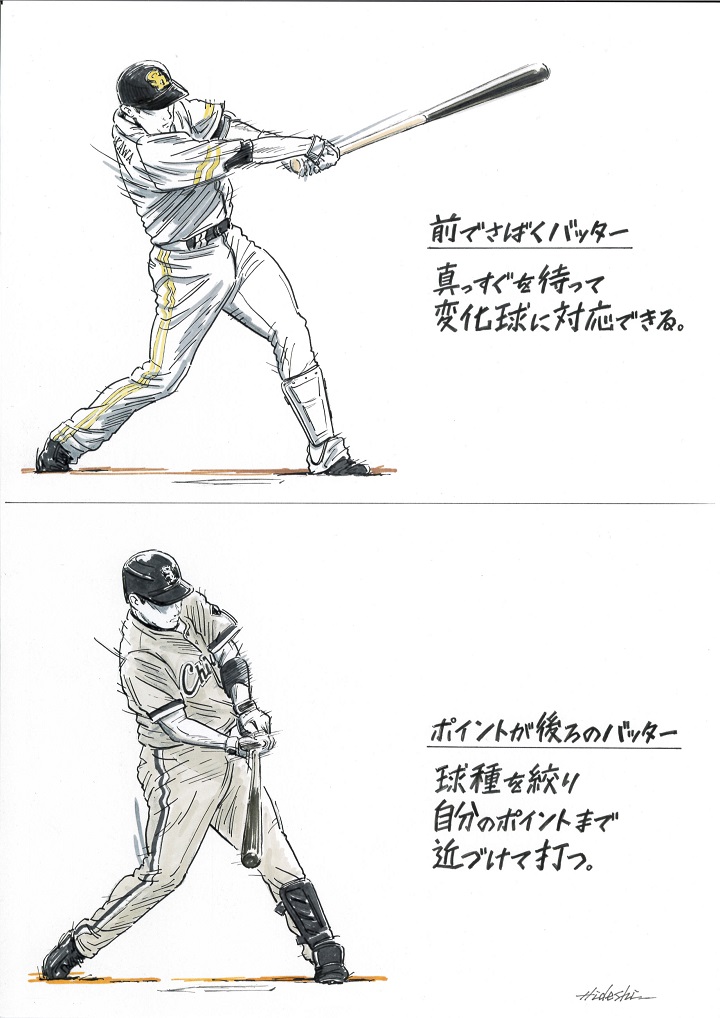 KAWA
前でさばくバッター
真っすぐを待って
変化球に対応できる。
Chi
ポイントが後ろのバッター
球種を絞り
自分のポイントまで
近づけて打つ。
Hideshi